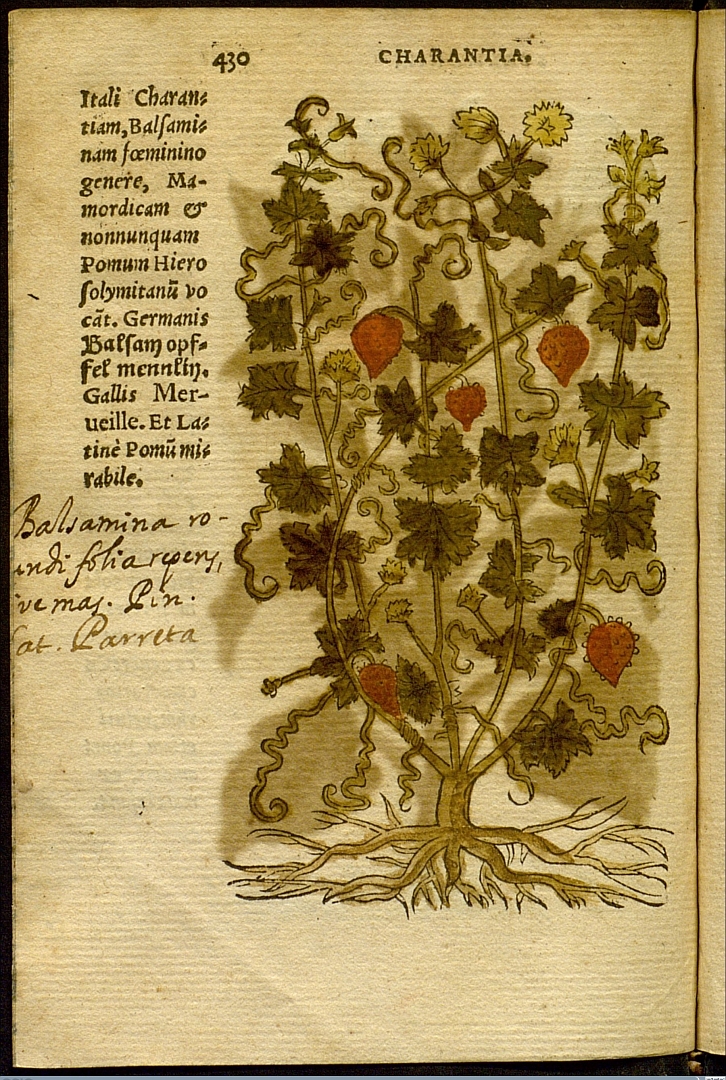 430 CHARANTIA.
Itali Charan⸗
tiam, Balſami⸗
nam fœminino
genere, Ma-
mordicam &
nonnunquam
Pomum Hiero
ſolymitanū vo
cāt. Germanis
Balſam opf⸗
fel mennlin.
Gallis Mer-
ueille. Et La⸗
tinè Pomū mi⸗
rabile.
Balsamina ro-
undifolia repens,
ive mas. Pin.
at. Parreta